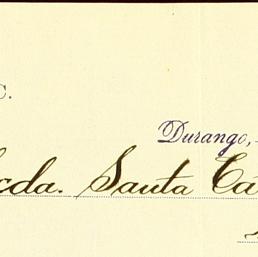 C.
Durango,
cda. Santa Ca